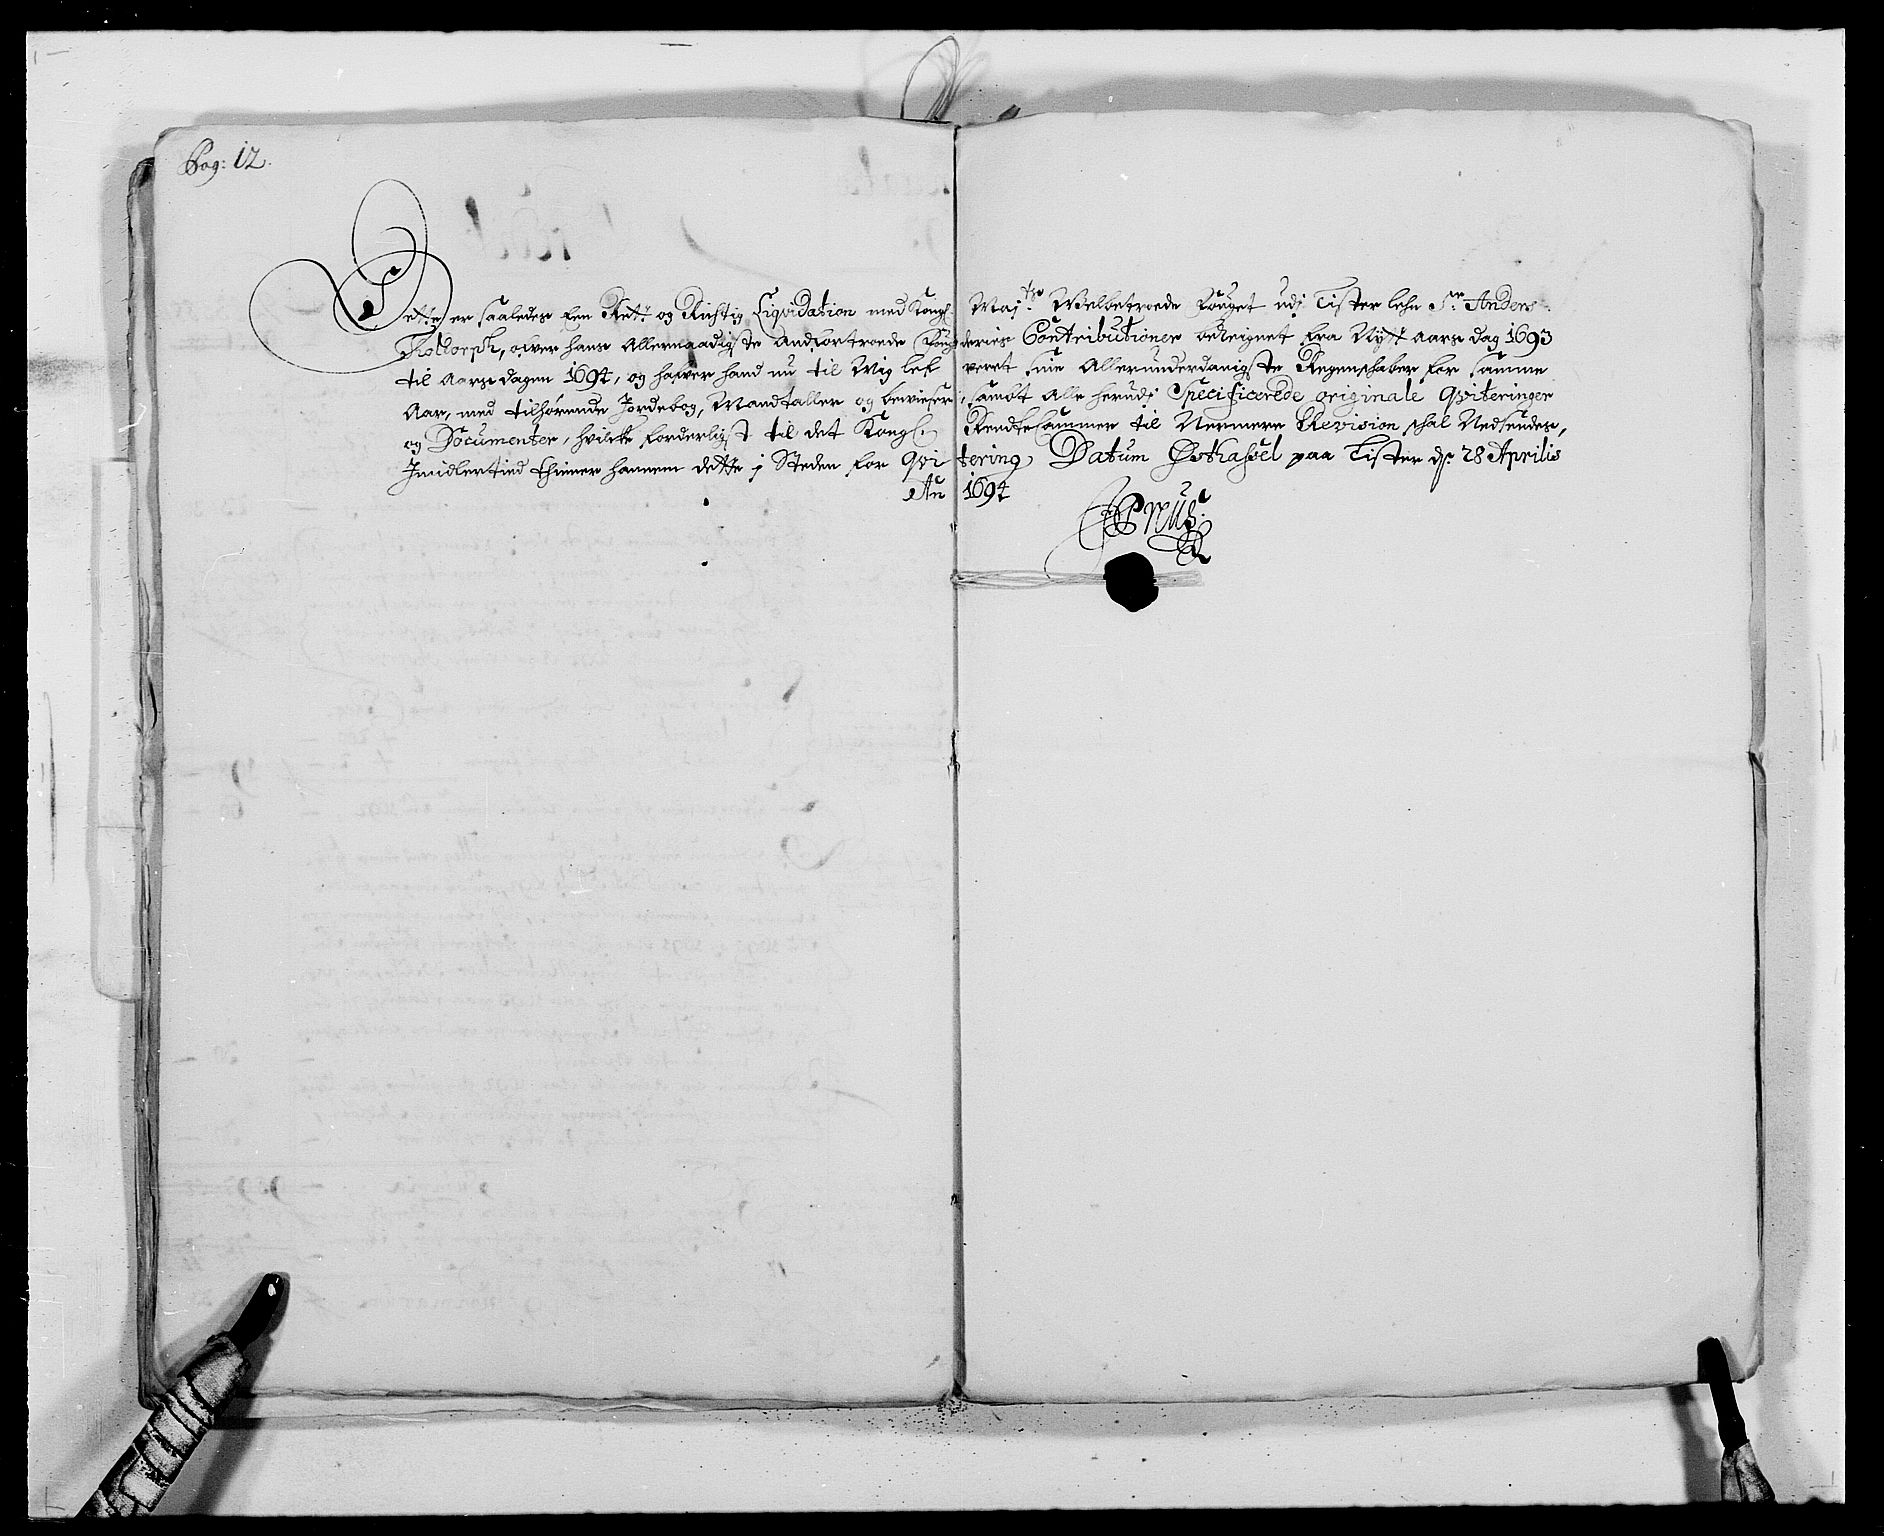 Pag: 12.
Dette er saaledes Een Rett og Rigtig Liqvidation med Kongl: Maj:ts Welbetroede Fouget udj Lister lehn Sr. Anders
ofwer hans Allernaadigste Andfortroede Fougderies Contributioner beleignet fra Nytt Aars dag 1693
til Aars dagen 1694, og hafwer hand nu til Mig lefveret sine Allerunderdanigste Regenskaber for samme
Aar, med tilhörende Jordebog, Mandtaller og bewieser, sambt Alle herudj Specificerede originale Qviteringer
og Documenter, hvilcke forderligst til det Kongl. Rendte Cammer til Nermere Revision skal Nedsendes,
Imidlertiid thiener hannem dette j Steden for Qvitering, Datum paa Lister d. 28 Aprilis
An 1694